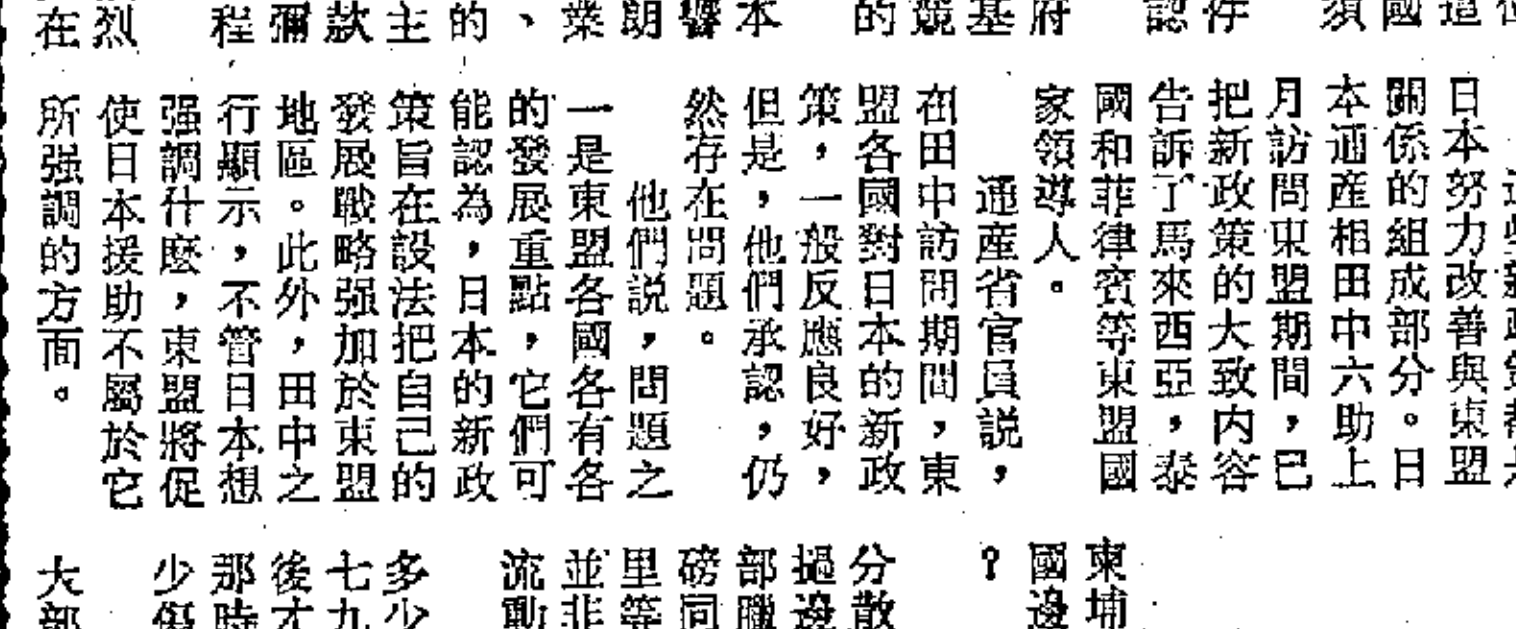 日本努力改善與東盟
關係的組成部分。日
本通産相田中六助上
月訪問東盟期間，已
把新政策的大致内容
告訴了馬來西亞，泰
國和菲律賓等東盟國
家領導人。
通産省官員説，
在田中訪問期間，東
盟各國對日本的新政
策，一般反應良好，
但是，他們承認，仍
然存在問題。
他們説，問題之
一是東盟各國各有各
的發展重點，它們可
能認為，日本的新政
策旨在設法把自己的
發展戰略强加於東盟
地區。此外，田中之
行顯示，不管日本想
强調什麽，東盟將促
使日本援助不屬於它
所强調的方面。
府
基
競
的
本
響
朗
業
、
的
主
款
彌
程
烈
在
柬埔
國邊
？
分散
過邊
部臘
磅同
里等
並非
流動
多少
七九
後才
那時
少傷
大部